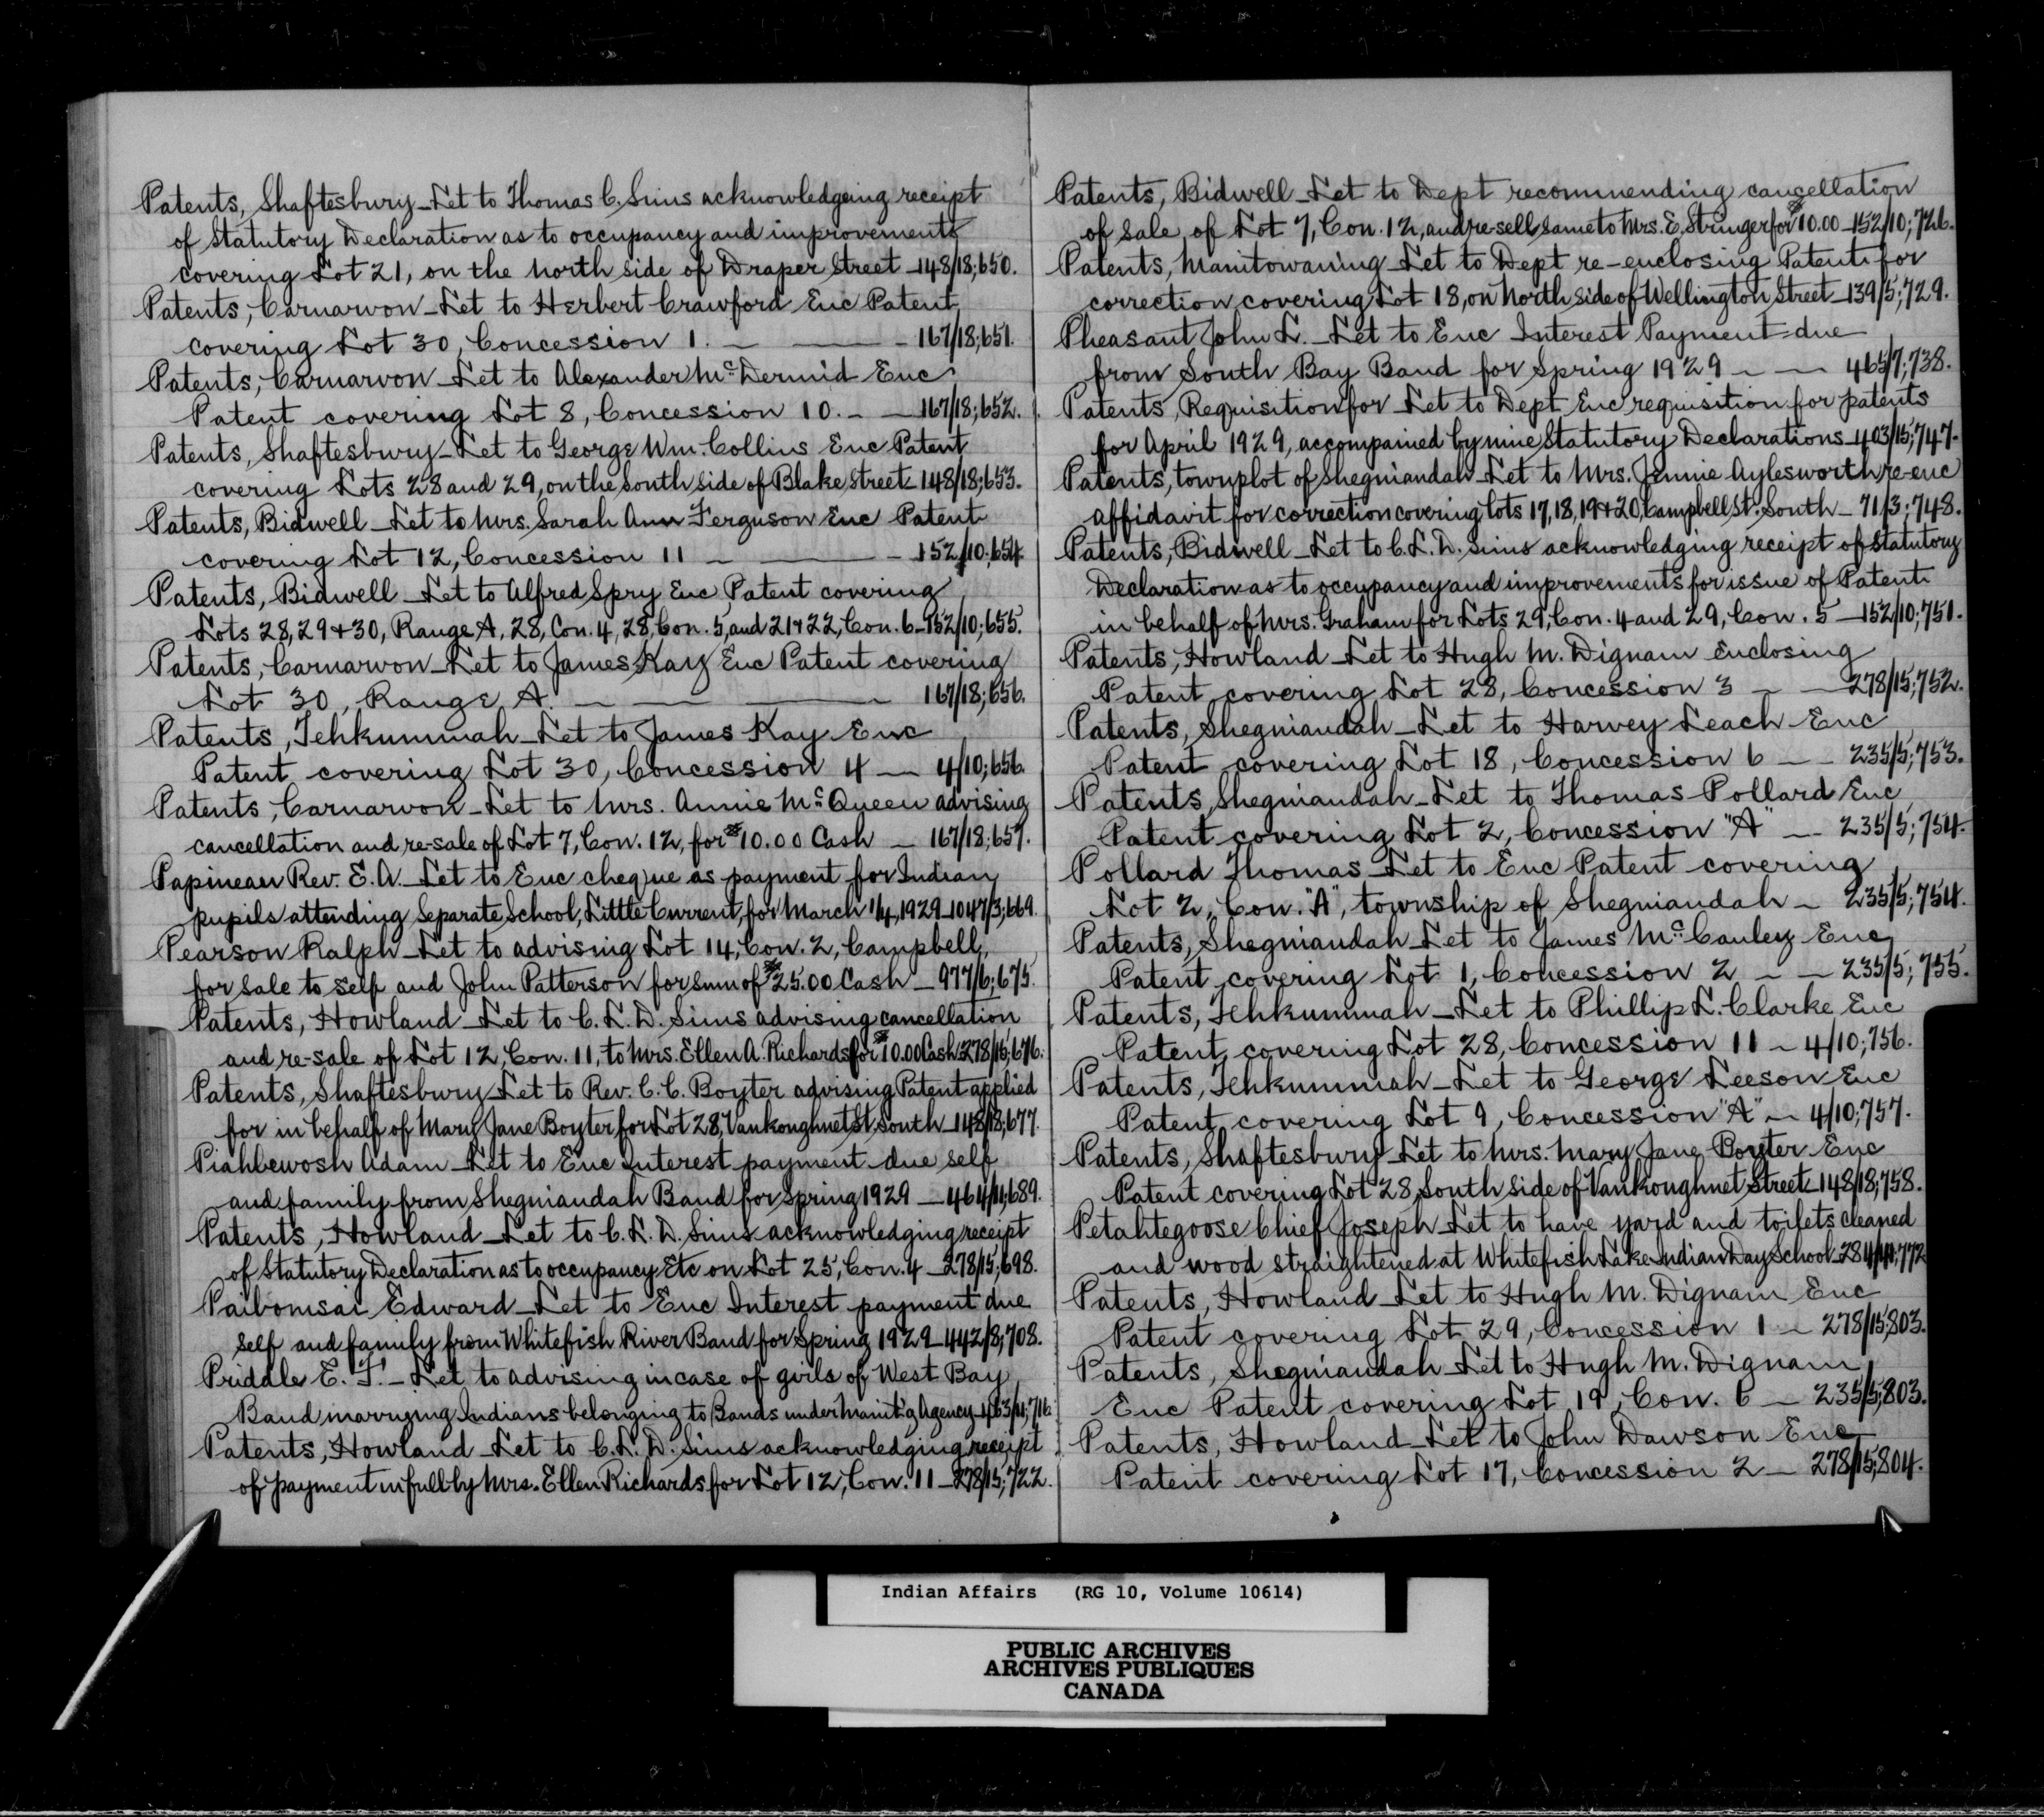 Patents, Shaftesbury - Let to Thomas C. Sims acknowledgeing receipt
of Statutory Declaration as to occupancy and improvements
covering Lot 21, on the North side of Draper Street - 148/18;650.
Patents, Carnarvon - Let to Herbert Crawford Enc Patent
covering Lot 30, Concession 1. - - 167/18;651.
Patents, Carnarvon - Let to Alexander McDermid Enc
Patent covering Lot 8, Concession 10. - - 167/18;652.
Patents, Shaftesbury - Let to George Wm. Collins Enc Patent
covering Lots 28 and 29, on the South side of Blake Street - 148/18;653.
Patents, Bidwell - Let to Mrs. Sarah Ann Ferguson Enc Patent
covering Lot 12, Concession 11 - - 152/10;654
Patents, Bidwell - Let to Alfred Spry Enc Patent covering
Lots 28, 29 + 30, Range A, 28, Con. 4, 28, Con. 5, and 21 + 22, Con. 6 - 152/10;655.
Patents, Carnarvon - Let to James Kay Enc Patent covering
Lot 30, Range A. - - 167/18;656.
Patents, Tehkummah - Let to James Kay Enc
Patent covering Lot 30, Concession 4 - 4/10;656.
Patents, Carnarvon - Let to Mrs. Annie McQueen advising
cancellation and re-sale of Lot 7, Con. 12, for $10.00 Cash - 167/18;657.
Papineau Rev. E. A. - Let to Enc cheque as payment for Indian
pupils attending Separate School, Little Current, for March 1/4, 1929 - 1047/3;669.
Pearson Ralph - Let to advising Lot 14, Con. 2, Campbell,
for sale to self and John Patterson for sum of $25.00 Cash - 977/6;675.
Patents, Howland - Let to C. L. D. Sims advising cancellation
and re-sale of Lot 12, Con. 11, to Mrs. Ellen A. Richards for $10.00 Cash 278/15;676.
Patents, Shaftesbury - Let to Rev. C. C. Boyter advising Patent applied
for in behalf of Mary Jane Boyter, for Lot 28, Vankoughnet St. South - 148/18;677.
Piahbewosh Adam - Let to Enc Interest payment due self
and family from Shegniandah Band for Spring 1929 - 464/11;689.
Patents, Howland - Let to C. L. D. Sims acknowledging receipt
of Statutory Declaration as to occupancy Etc on Lot 25, Con. 4 - 278/15;698.
Paibomsai Edward - Let to Enc Interest payment due
self and family from Whitefish River Band for Spring 1929 - 442/8;708.
Priddle E. F. - Let to advising in case of girls of West Bay
Band marrying Indians belonging to Bands under Manit'g Agency - 463/11;716.
Patents, Howland - Let to C. L. D. Sims acknowledging receipt
of payment in full by Mrs. Ellen Richards for Lot 12, Con. 11 - 278/15;722.
Patents, Bidwell - Let to Dept recommending cancellation
of sale of Lot 7, Con. 12, and re-sell same to Mrs. E. Stringer for $10.00 - 152/10;726.
Patents, Manitowaning - Let to Dept re-enclosing Patent for
correction covering Lot 18, on North side of Wellington Street - 139/5;729.
Pheasant John L. - Let to Enc Interest Payment due
from South Bay Band for Spring 1929 - - 465/7;738.
Patents, Requisition for - Let to Dept Enc requisition for patents
for April 1929, accompained by nine Statutory Declarations - 403/15;747.
Patents, townplot of Shegniandah - Let to Mrs. Jennie Aylesworth re-enc
affidavit for correction covering Lots 17, 18, 19 + 20, Campbell St. South - 71/3;748.
Patents, Bidwell - Let to C. L. D. Sims acknowledging receipt of Statutory
Declaration as to occupancy and improvements for issue of Patent
in behalf of Mrs. Graham for Lots 29, Con. 4 and 29, Con. 5 - 152/10;751.
Patents, Howland - Let to Hugh M. Dignam Enclosing
Patent covering Lot 28, Concession 3 - - 278/15;752.
Patents, Shegniandah - Let to Harvey Leach Enc
Patent covering Lot 18, Concession 6 - - 235/5;753.
Patents, Shegniandah - Let to Thomas Pollard Enc
Patent covering Lot 2, Concession "A" - - 235/5;754.
Pollard Thomas - Let to Enc Patent covering
Lot 2, Con. "A", township of Shegniandah - 235/5;754.
Patents, Shegniandah - Let to James McCauley Enc
Patent covering Lot 1, Concession 2 - - 235/5;755.
Patents, Tehkummah - Let to Phillip L. Clarke Enc
Patent covering Lot 28, Concession 11 - 4/10;756.
Patents, Tehkummah - Let to George Leeson Enc
Patent covering Lot 9, Concession "A" - 4/10;757.
Patents, Shaftesbury - Let to Mrs. Mary Jane Boyter Enc
Patent covering Lot 28, South side of Vankoughnet Street - 148/18;758.
Petahtegoose Chief Joseph - Let to have yard and toilets cleaned
and wood straightened at Whitefish Lake Indian Day School - 284/14;772
Patents, Howland - Let to Hugh M. Dignam Enc
Patent covering Lot 29, Concession 1 - 278/15;803.
Patents, Shegniandah - Let to Hugh M. Dignam
Enc Patent covering Lot 19, Con. 6 - 235/5;803.
Patents, Howland - Let to John Dawson Enc
Patent covering Lot 17, Concession 2 - 278/15;804.
Indian Affairs (RG 10, Volume 10614)
PUBLIC ARCHIVES
ARCHIVES PUBLIQUES
CANADA